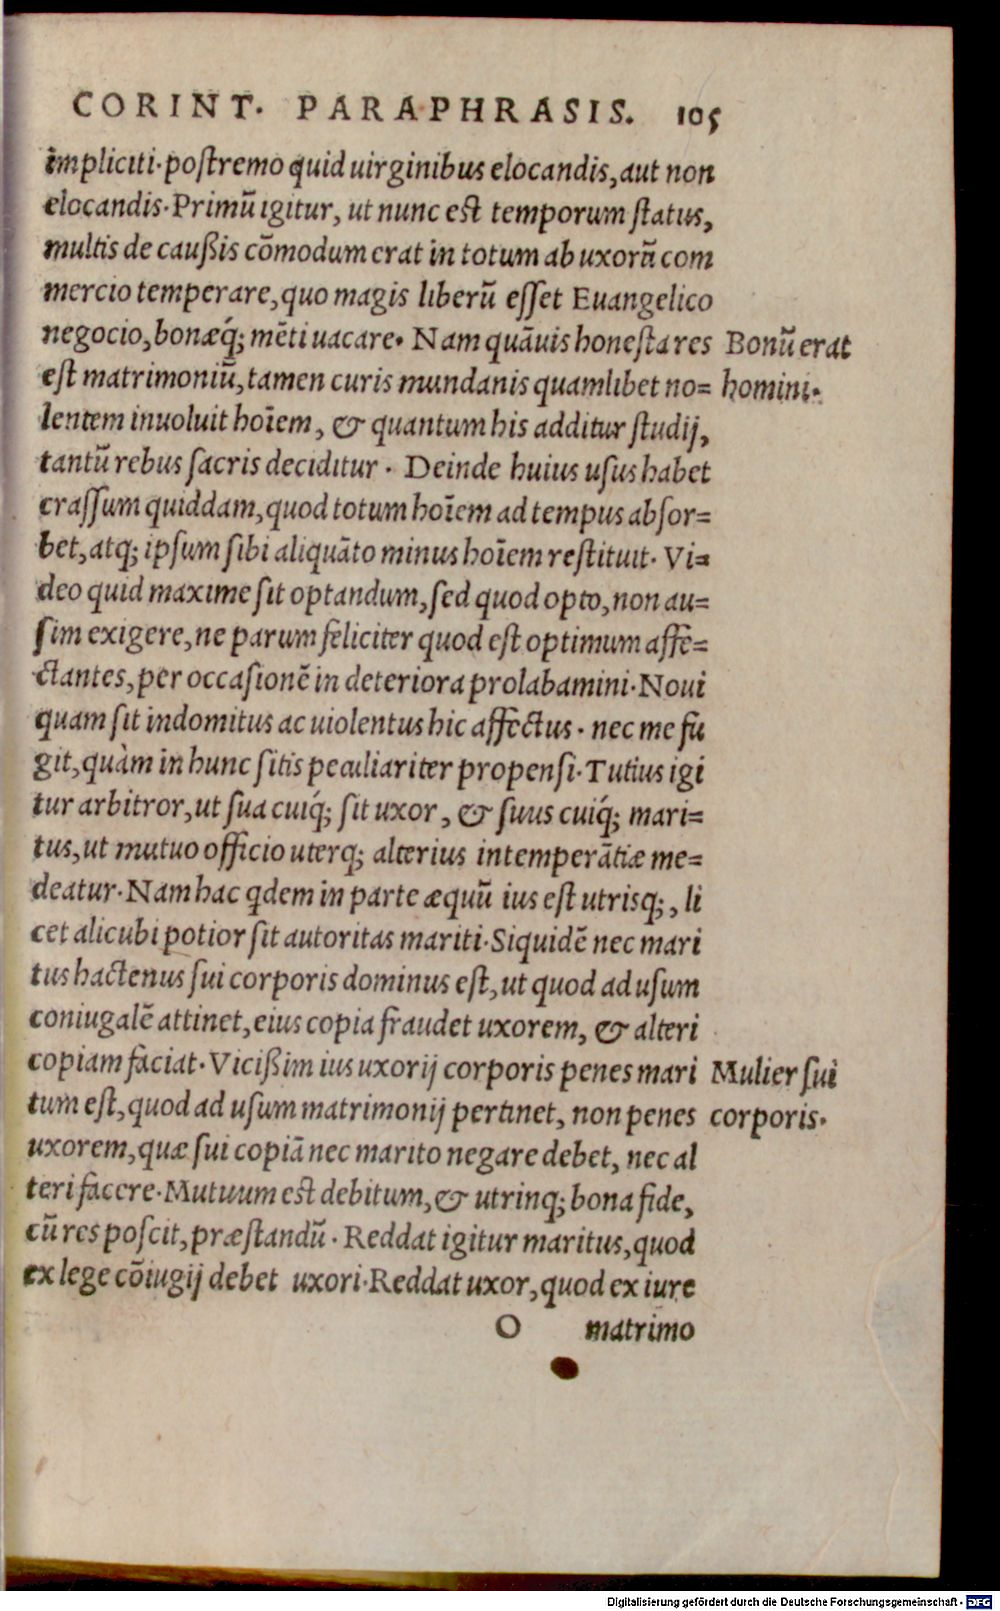 CORINT. PARAPHRASIS. 105
impliciti. postremo quid uirginibus elocandis, aut non
elocandis. Primũ igitur, ut nunc est temporum status,
multis de caußis cõmodum erat in totum ab uxorũ com
mercio temperare, quo magis liberũ esset Euangelico
negocio, bonæq́; mẽti uacare. Nam quãuis honesta res
Bonũ erat
est matrimoniũ, tamen curis mundanis quamlibet no=
homini.
lentem inuoluit hoĩem, & quantum his additur studij,
tantũ rebus sacris deciditur. Deinde huius usus habet
crassum quiddam, quod totum hoĩem ad tempus absor=
bet, atq; ipsum sibi aliquãto minus hoĩem restituit. Vi=
deo quid maxime sit optandum, sed quod opto, non au=
sim exigere, ne parum feliciter quod est optimum affe=
ctantes, per occasionẽ in deteriora prolabamini. Noui
quam sit indomitus ac uiolentus hic affectus. nec me fu
git, quàm in hunc sitis peculiariter propensi. Tutius igi
tur arbitror, ut sua cuiq́; sit uxor, & suus cuiq́; mari=
tus, ut mutuo officio uterq; alterius intemperãtiæ me=
deatur. Nam hac qdem in parte æquũ ius est utrisq;, li
cet alicubi potior sit autoritas mariti. Siquidẽ nec mari
tus hactenus sui corporis dominus est, ut quod ad usum
coniugalẽ attinet, eius copia fraudet uxorem, & alteri
copiam faciat. Vicißim ius uxorij corporis penes mari
Mulier sui
tum est, quod ad usum matrimonij pertinet, non penes
corporis.
uxorem, quæ sui copiã nec marito negare debet, nec al
teri facere. Mutuum est debitum, & utrinq; bona fide,
cũ res poscit, præstandũ. Reddat igitur maritus, quod
ex lege cõiugij debet uxori. Reddat uxor, quod ex iure
O matrimo
Digitalisierung gefördert durch die Deutsche Forschungsgemeinschaft - DFG